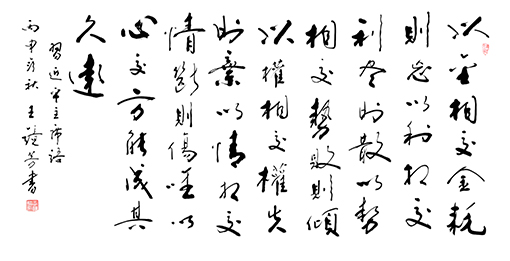 以金相交金耗
則忘以利相交
利盡則散以勢
相交勢敗則傾
以權相交權失
則棄以情相交
情斷則傷唯以
心交方能成其
久遠
習近平主席語
丙申秋王芳書